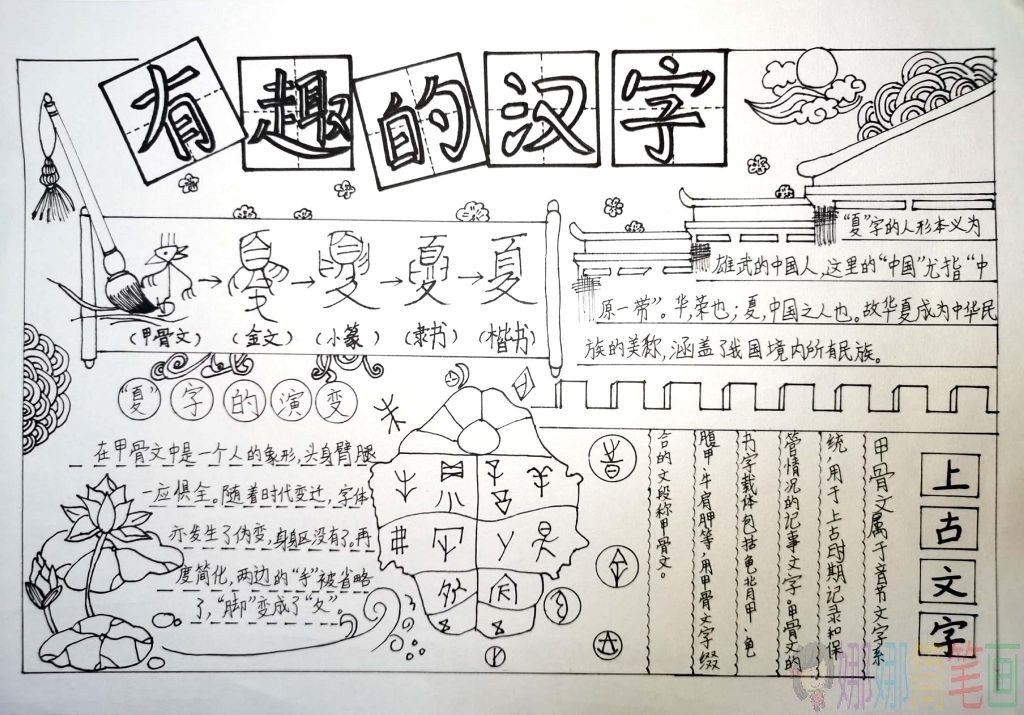 有趣的汉字
(甲骨文)
(金文)
(小篆)
(隶书)
(楷书)
夏
"夏"字的演变
"夏"字的人形本义为
雄武的中国人,这里的"中国"尤指"中
原一带"。华,荣也;夏,中国之人也。故华夏成为中华民
族的美称,涵盖了我国境内所有民族。
在甲骨文中是一个人的象形,头身臂腿
一应俱全。随着时代变迁,字体
亦发生了伪变,身躯没有了。再
度简化,两边的"手"被省略
了,"脚"变成了"夂"。
上古文字
甲骨文属于音节文字系
统,用于上古时期记录和保
管情况的记事文字。甲骨文的
书字载体包括龟背甲、龟
腹甲、牛肩胛等,用甲骨文字缀
合的文段称甲骨文。
娜娜简笔画